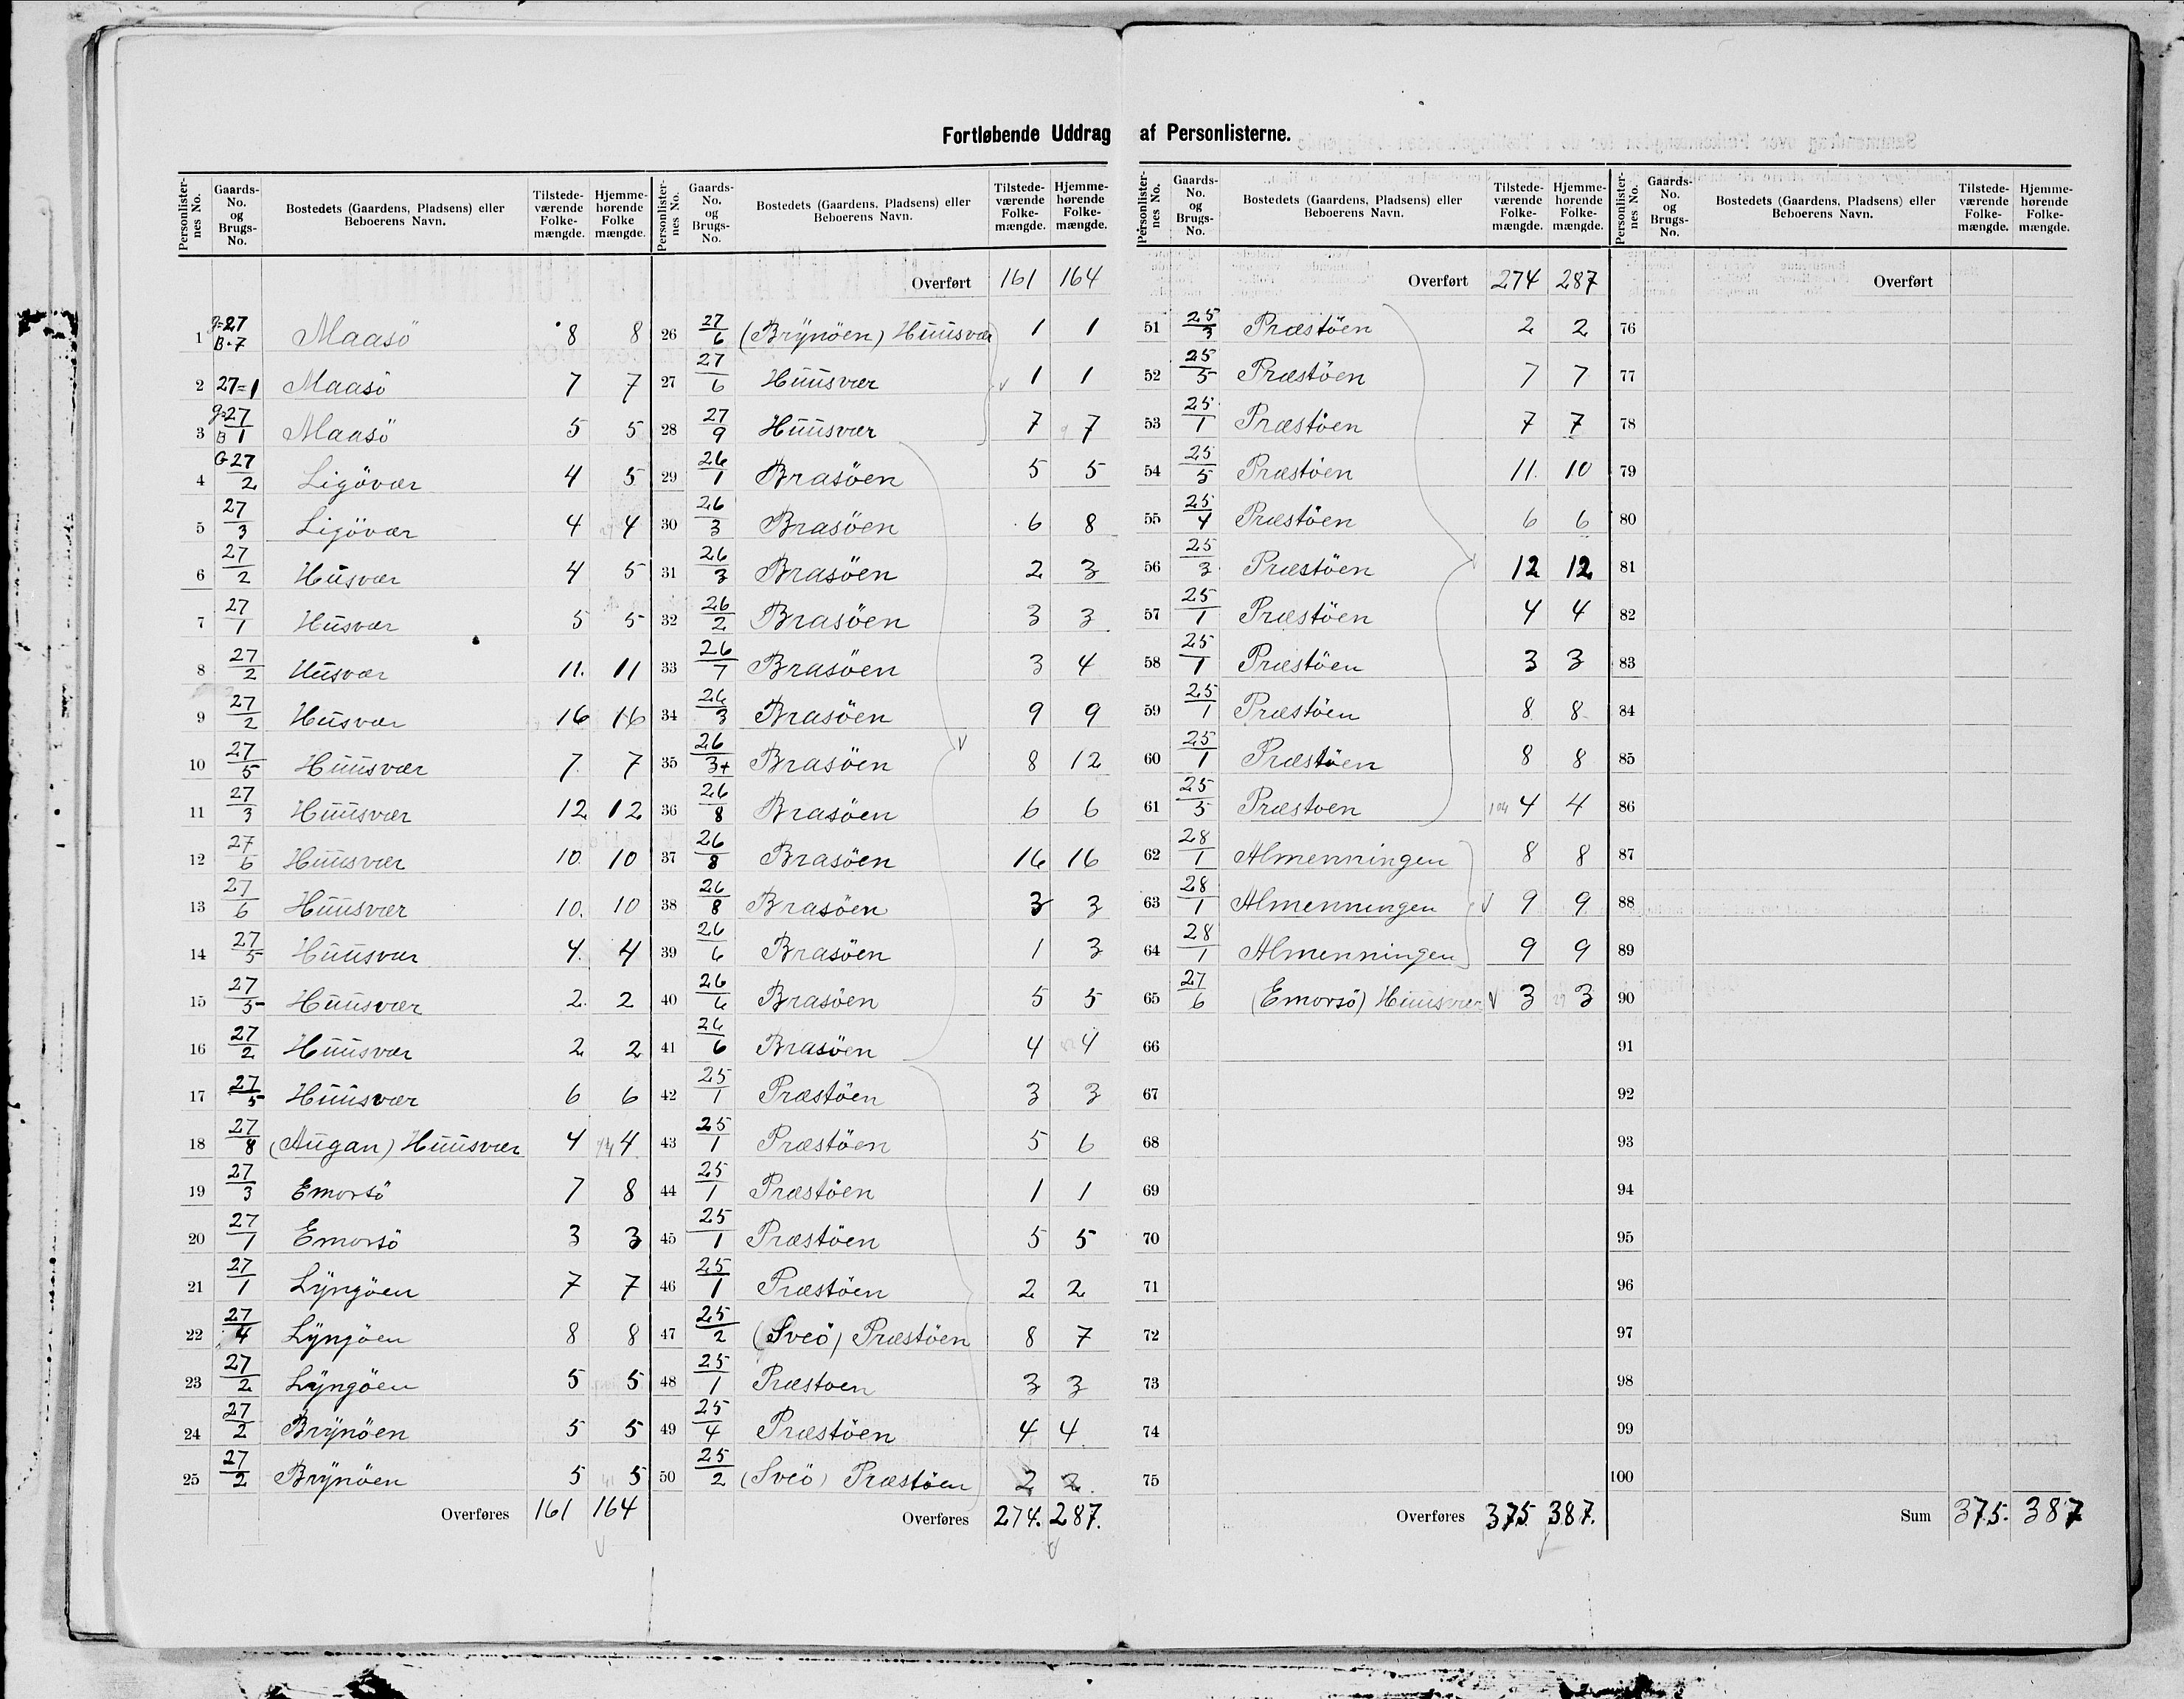 Fortløbende Uddrag af Personlisterne.
Personlister-nes No. | Gaards-No. og Brugs-No. | Bostedets (Gaardens, Pladsens) eller Beboerens Navn. | Tilstede-værende Folke-mængde. | Hjemme-hørende Folke mængde.
1 | g=27 B.7 | Maasö | 8 | 8
2 | 27=1 | Maasö | 7 | 7
3 | g=27 B 1 | Maasö | 5 | 5
4 | G 27/2 | Ligövær | 4 | 5
5 | 27/3 | Ligövær | 4 | 4
6 | 27/2 | Husvær | 4 | 5
7 | 27/1 | Husvær | 5 | 5
8 | 27/2 | Husvær | 11. | 11
9 | 27/2 | Husvær | 16 | 16
10 | 27/5 | Huusvær | 7. | 7
11 | 27/3 | Huusvær | 12 | 12
12 | 27/6 | Huusvær | 10. | 10
13 | 27/6 | Huusvær | 10. | 10
14 | 27/5 | Huusvær | 4. | 4
15 | 27/5 | Huusvær | 2. | 2
16 | 27/2 | Huusvær | 2 | 2
17 | 27/5 | Huusvær | 6 | 6
18 | 27/8 | (Augan) Huusvær | 4 | 4
19 | 27/3 | Emorsö | 7 | 8
20 | 27/1 | Emorsö | 3 | 3
21 | 27/1 | Lyngöen | 7 | 7
22 | 27/4 | Lyngöen | 8 | 8
23 | 27/2 | Lyngöen | 5 | 5
24 | 27/2 | Brynöen | 5 | 5
25 | 27/2 | Brynöen | 5 | 5
Overføres | 161 | 164
Personlister-nes No. | Gaards-No. og Brugs-No. | Bostedets (Gaardens, Pladsens) eller Beboerens Navn. | Tilstede-værende Folke-mængde. | Hjemme-hørende Folke-mængde.
Overført | 161 | 164
26 | 27/6 | (Brynöen) Huusvær | 1 | 1
27 | 27/6 | Huusvær | 1 | 1
28 | 27/9 | Huusvær | 7 | 7
29 | 26/1 | Brasöen | 5 | 5
30 | 26/3 | Brasöen | 6 | 8
31 | 26/3 | Brasöen | 2 | 3
32 | 26/2 | Brasöen | 3 | 3
33 | 26/7 | Brasöen | 3 | 4
34 | 26/3 | Brasöen | 9 | 9
35 | 26/3+ | Brasöen | 8 | 12
36 | 26/8 | Brasöen | 6 | 6
37 | 26/8 | Brasöen | 16 | 16
38 | 26/8 | Brasöen | 3 | 3
39 | 26/6 | Brasöen | 1 | 3
40 | 26/6 | Brasöen | 5 | 5
41 | 26/6 | Brasöen | 4 | 4
42 | 25/1 | Præstöen | 3 | 3
43 | 25/1 | Præstöen | 5 | 6
44 | 25/1 | Præstöen | 1 | 1
45 | 25/1 | Præstöen | 5 | 5
46 | 25/1 | Præstöen | 2 | 2
47 | 25/2 | (Sveö) Præstöen | 8 | 7
48 | 25/1 | Præstoen | 3 | 3
49 | 25/4 | Præstöen | 4 | 4
50 | 25/2 | (Sveö) Præstöen | 2 | 2.
Overføres | 274. | 287.
Personlister-nes No. | Gaards-No. og Brugs-No. | Bostedets (Gaardens, Pladsens) eller Beboerens Navn. | Tilstede-værende Folke-mængde. | Hjemme-hørende Folke-mængde.
Overført | 274 | 287
51 | 25/3 | Præstöen | 2 | 2
52 | 25/5 | Præstöen | 7 | 7
53 | 25/1 | Præstöen | 7 | 7
54 | 25/5 | Præstöen | 11. | 10
55 | 25/4 | Præstöen | 6 | 6
56 | 25/3 | Præstöen | 12 | 12
57 | 25/1 | Præstöen | 4 | 4
58 | 25/1 | Præstöen | 3 | 3
59 | 25/1 | Præstöen | 8 | 8
60 | 25/1 | Præstöen | 8 | 8
61 | 25/5 | Præstoen | 4 | 4
62 | 28/1 | Almenningen | 8 | 8
63 | 28/1 | Almenningen | 9 | 9
64 | 28/1 | Almenningen | 9 | 9
65 | 27/6 | (Emorsö) Huusvær | 3 | 3
66
67
68
69
70
71
72
73
74
75
Overføres | 375 | 387.
Personlister-nes No. | Gaards-No. og Brugs-No. | Bostedets (Gaardens, Pladsens) eller Beboerens Navn. | Tilstede-værende Folke-mængde. | Hjemme-hørende Folke-mængde.
Overført
76
77
78
79
80
81
82
83
84
85
86
87
88
89
90
91
92
93
94
95
96
97
98
99
100
Sum | 375. | 387